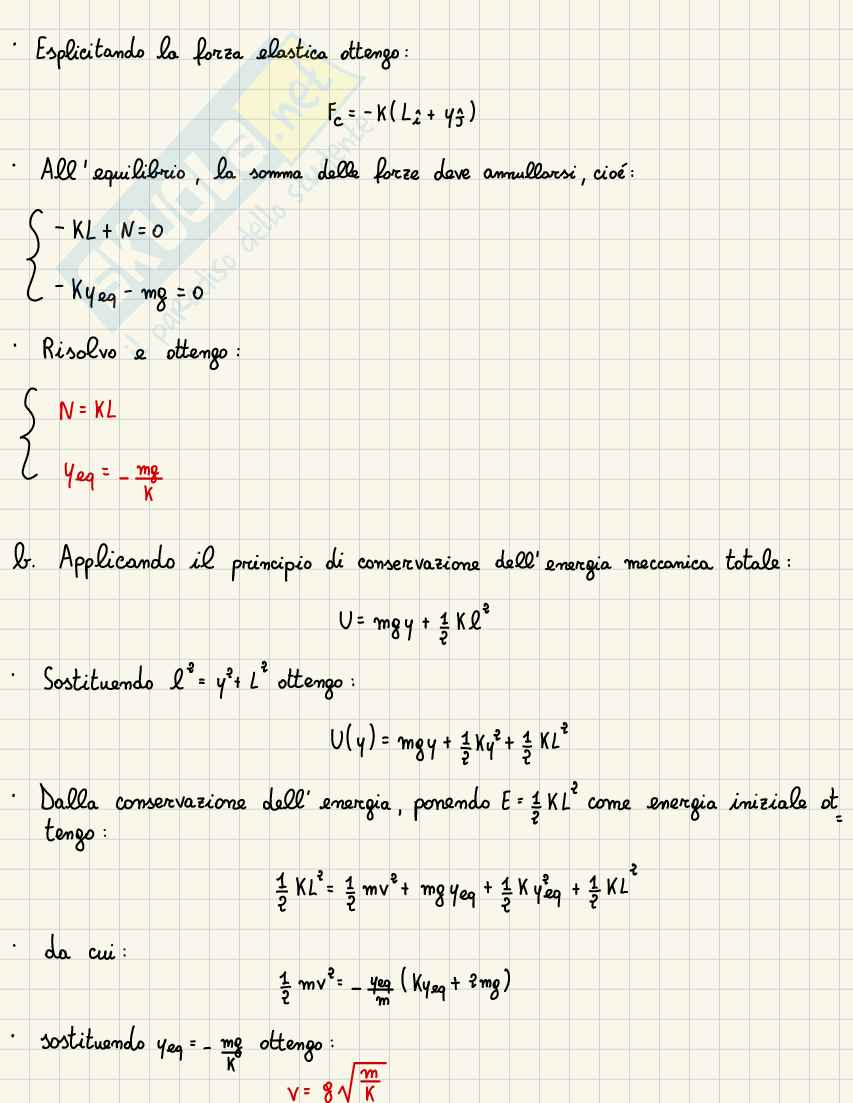 · Esplicitando la forza elastica ottengo:
F_c = -K(L î + y ĵ)
· All'equilibrio, la somma delle forze deve annullarsi, cioé:
{ - KL + N = 0
- Ky_eq - mg = 0
· Risolvo e ottengo:
{ N = KL
y_eq = - mg/K
b. Applicando il principio di conservazione dell'energia meccanica totale:
U = mgy + 1/2 Kl²
· Sostituendo l² = y² + L² ottengo:
U(y) = mgy + 1/2 Ky² + 1/2 KL²
· Dalla conservazione dell'energia, ponendo E = 1/2 KL² come energia iniziale ot=
tengo:
1/2 KL² = 1/2 mv² + mgy_eq + 1/2 Ky²_eq + 1/2 KL²
· da cui:
1/2 mv² = - y_eq/m (Ky_eq + 2mg)
· sostituendo y_eq = - mg/K ottengo:
v = g√(m/K)
skuola.net
il paradiso dello studente